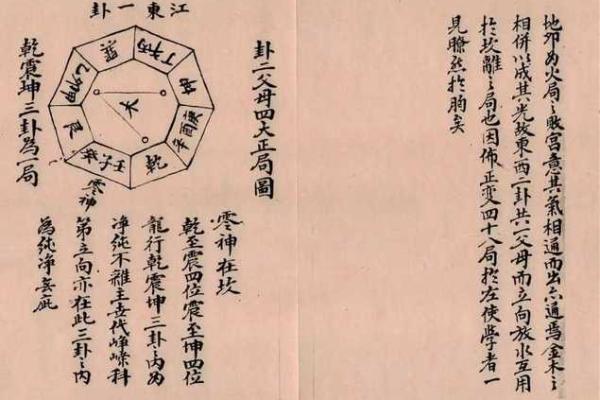 地卯为火局之敗宫意其氣相通而出亦通焉金木之
相併以成其光故東西二卦共一父母而立向放水互用
於坎離之局也因佈正变四十八局於左使學者一
見瞭然於胸矣
卦二父母四大正局圖
江東一卦
巽
丙午丁
坤
庚酉辛
乾
壬子癸
艮
甲卯乙
零神
乾震坤三卦為一局
零神在坎
乾至震四位震至坤四位
龍行乾震坤三卦之内为
净純不雜主世代崢嶸科
第立向亦在此三卦之内
為純净無疵